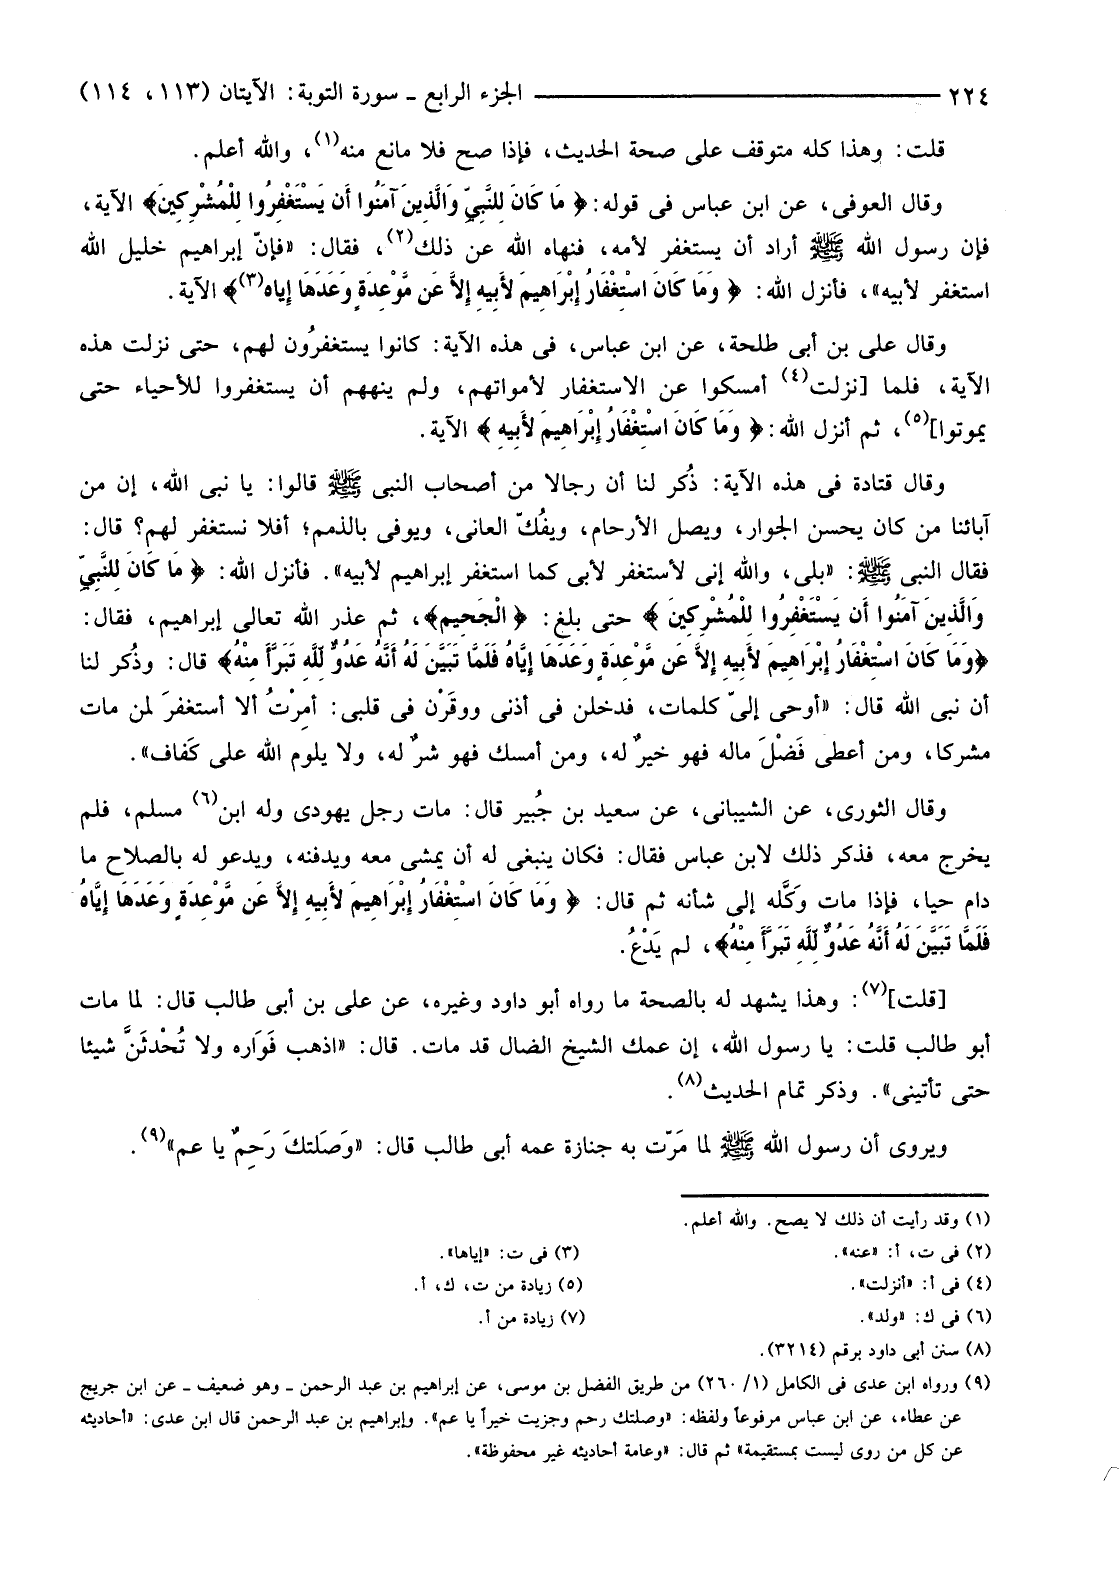 ٢٢٤ ــــــــــــــــــــ الجزء الرابع ـ سورة التوبة: الآيتان (١١٣، ١١٤)
قلت: وهذا كله متوقف على صحة الحديث، فإذا صح فلا مانع منه(١)، والله أعلم.
وقال العوفى، عن ابن عباس فى قوله: ﴿ مَا كَانَ لِلنَّبِيِّ وَالَّذِينَ آمَنُوا أَن يَسْتَغْفِرُوا لِلْمُشْرِكِينَ﴾ الآية،
فإن رسول الله ﷺ أراد أن يستغفر لأمه، فنهاه الله عن ذلك(٢)، فقال: «فإنّ إبراهيم خليل الله
استغفر لأبيه»، فأنزل الله: ﴿ وَمَا كَانَ اسْتِغْفَارُ إِبْرَاهِيمَ لأَبِيهِ إِلاَّ عَن مَّوْعِدَةٍ وَعَدَهَا إِياه(٣)﴾ الآية.
وقال على بن أبى طلحة، عن ابن عباس، فى هذه الآية: كانوا يستغفرُون لهم، حتى نزلت هذه
الآية، فلما [نزلت(٤) أمسكوا عن الاستغفار لأمواتهم، ولم ينههم أن يستغفروا للأحياء حتى
يموتوا](٥)، ثم أنزل الله: ﴿ وَمَا كَانَ اسْتِغْفَارُ إِبْرَاهِيمَ لأَبِيهِ ﴾ الآية.
وقال قتادة فى هذه الآية: ذُكر لنا أن رجالا من أصحاب النبى ﷺ قالوا: يا نبى الله، إن من
آبائنا من كان يحسن الجوار، ويصل الأرحام، ويفُكّ العانى، ويوفى بالذمم؛ أفلا نستغفر لهم؟ قال:
فقال النبى ﷺ: «بلى، والله إنى لأستغفر لأبى كما استغفر إبراهيم لأبيه». فأنزل الله: ﴿ مَا كَانَ لِلنَّبِيِّ
وَالَّذِينَ آمَنُوا أَن يَسْتَغْفِرُوا لِلْمُشْرِكِينَ ﴾ حتى بلغ: ﴿ الْجَحِيمِ﴾، ثم عذر الله تعالى إبراهيم، فقال:
﴿وَمَا كَانَ اسْتِغْفَارُ إِبْرَاهِيمَ لأَبِيهِ إِلاَّ عَن مَّوْعِدَةٍ وَعَدَهَا إِيَّاهُ فَلَمَّا تَبَيَّنَ لَهُ أَنَّهُ عَدُوٌّ لِّلَّهِ تَبَرَّأَ مِنْهُ﴾ قال: وذُكر لنا
أن نبى الله قال: «أوحى إلىّ كلمات، فدخلن فى أذنى ووقَرْن فى قلبى: أمِرْتُ ألا أستغفرَ لمن مات
مشركا، ومن أعطى فَضْلَ ماله فهو خيرٌ له، ومن أمسك فهو شرٌ له، ولا يلوم الله على كَفاف».
وقال الثورى، عن الشيبانى، عن سعيد بن جُبير قال: مات رجل يهودى وله ابن(٦) مسلم، فلم
يخرج معه، فذكر ذلك لابن عباس فقال: فكان ينبغى له أن يمشى معه ويدفنه، ويدعو له بالصلاح ما
دام حيا، فإذا مات وَكَّله إلى شأنه ثم قال: ﴿ وَمَا كَانَ اسْتِغْفَارُ إِبْرَاهِيمَ لأَبِيهِ إِلاَّ عَن مَّوْعِدَةٍ وَعَدَهَا إِيَّاهُ
فَلَمَّا تَبَيَّنَ لَهُ أَنَّهُ عَدُوٌّ لِّلَّهِ تَبَرَّأَ مِنْهُ﴾، لم يَدْعُ.
[قلت](٧): وهذا يشهد له بالصحة ما رواه أبو داود وغيره، عن على بن أبى طالب قال: لما مات
أبو طالب قلت: يا رسول الله، إن عمك الشيخ الضال قد مات. قال: «اذهب فَوَاره ولا تُحْدثَنَّ شيئا
حتى تأتينى». وذكر تمام الحديث(٨).
ويروى أن رسول الله ﷺ لما مَرّت به جنازة عمه أبى طالب قال: «وَصَلَتكَ رَحِمٌ يا عم»(٩).
(١) وقد رأيت أن ذلك لا يصح. والله أعلم.
(٢) فى ت، أ: «عنه». (٣) فى ت: «إياها».
(٤) فى أ: «أنزلت». (٥) زيادة من ت، ك، أ.
(٦) فى ك: «ولد». (٧) زيادة من أ.
(٨) سنن أبى داود برقم (٣٢١٤).
(٩) ورواه ابن عدى فى الكامل (١/ ٢٦٠) من طريق الفضل بن موسى، عن إبراهيم بن عبد الرحمن ـ وهو ضعيف ـ عن ابن جريج
عن عطاء، عن ابن عباس مرفوعاً ولفظه: «وصلتك رحم وجزيت خيراً يا عم». وإبراهيم بن عبد الرحمن قال ابن عدى: «أحاديثه
عن كل من روى ليست بمستقيمة» ثم قال: «وعامة أحاديثه غير محفوظة».